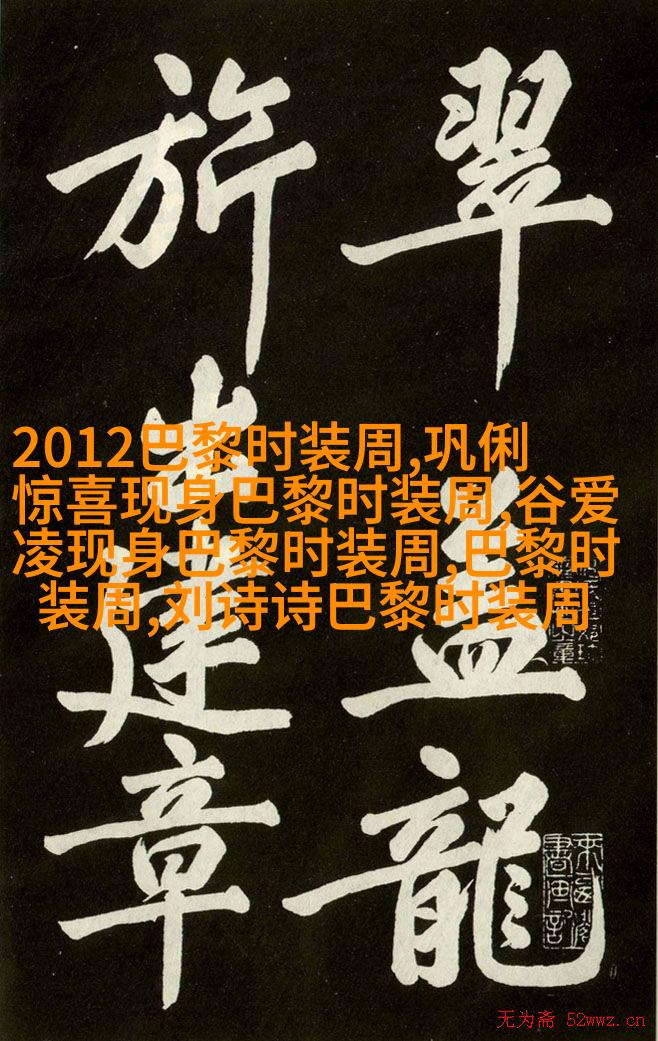 翠盖龍
旂出建章
2012巴黎时装周,巩俐
惊喜现身巴黎时装周,谷爱
凌现身巴黎时装周,巴黎时
装周,刘诗诗巴黎时装周
无为斋 52wwz.cn